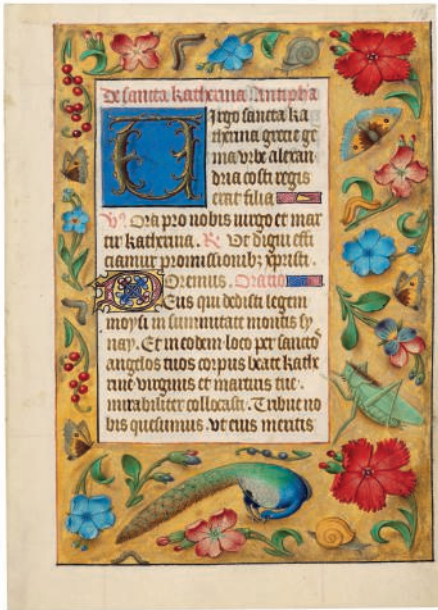 De sancta katherina Antipha
Virgo sancta ka
therina grecie ge
ma vrbe alexan
dria costi regis
erat filia
V. Ora pro nobis uirgo et mar
tir katherina. R. Vt digni effi
ciamur promissionibꝫ xpristi.
Oremus. Oratio
Deus qui dedisti legem
moysi in summitate montis sy
nay. Et in eodem loco per sancto⁹
angelos tuos corpus beate kathe
rine virginis et martiris tue.
mirabiliter collocasti. Tribue no
bis quesumus. vt eius meritis